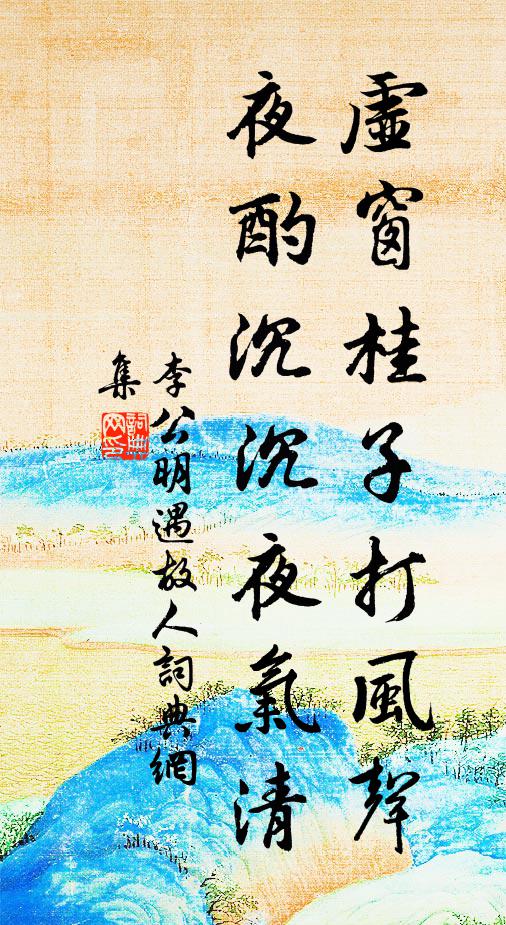 虛窗桂子打風聲
夜酌沉沉夜氣清
李公明遇故人詞典網
集
詞典網印